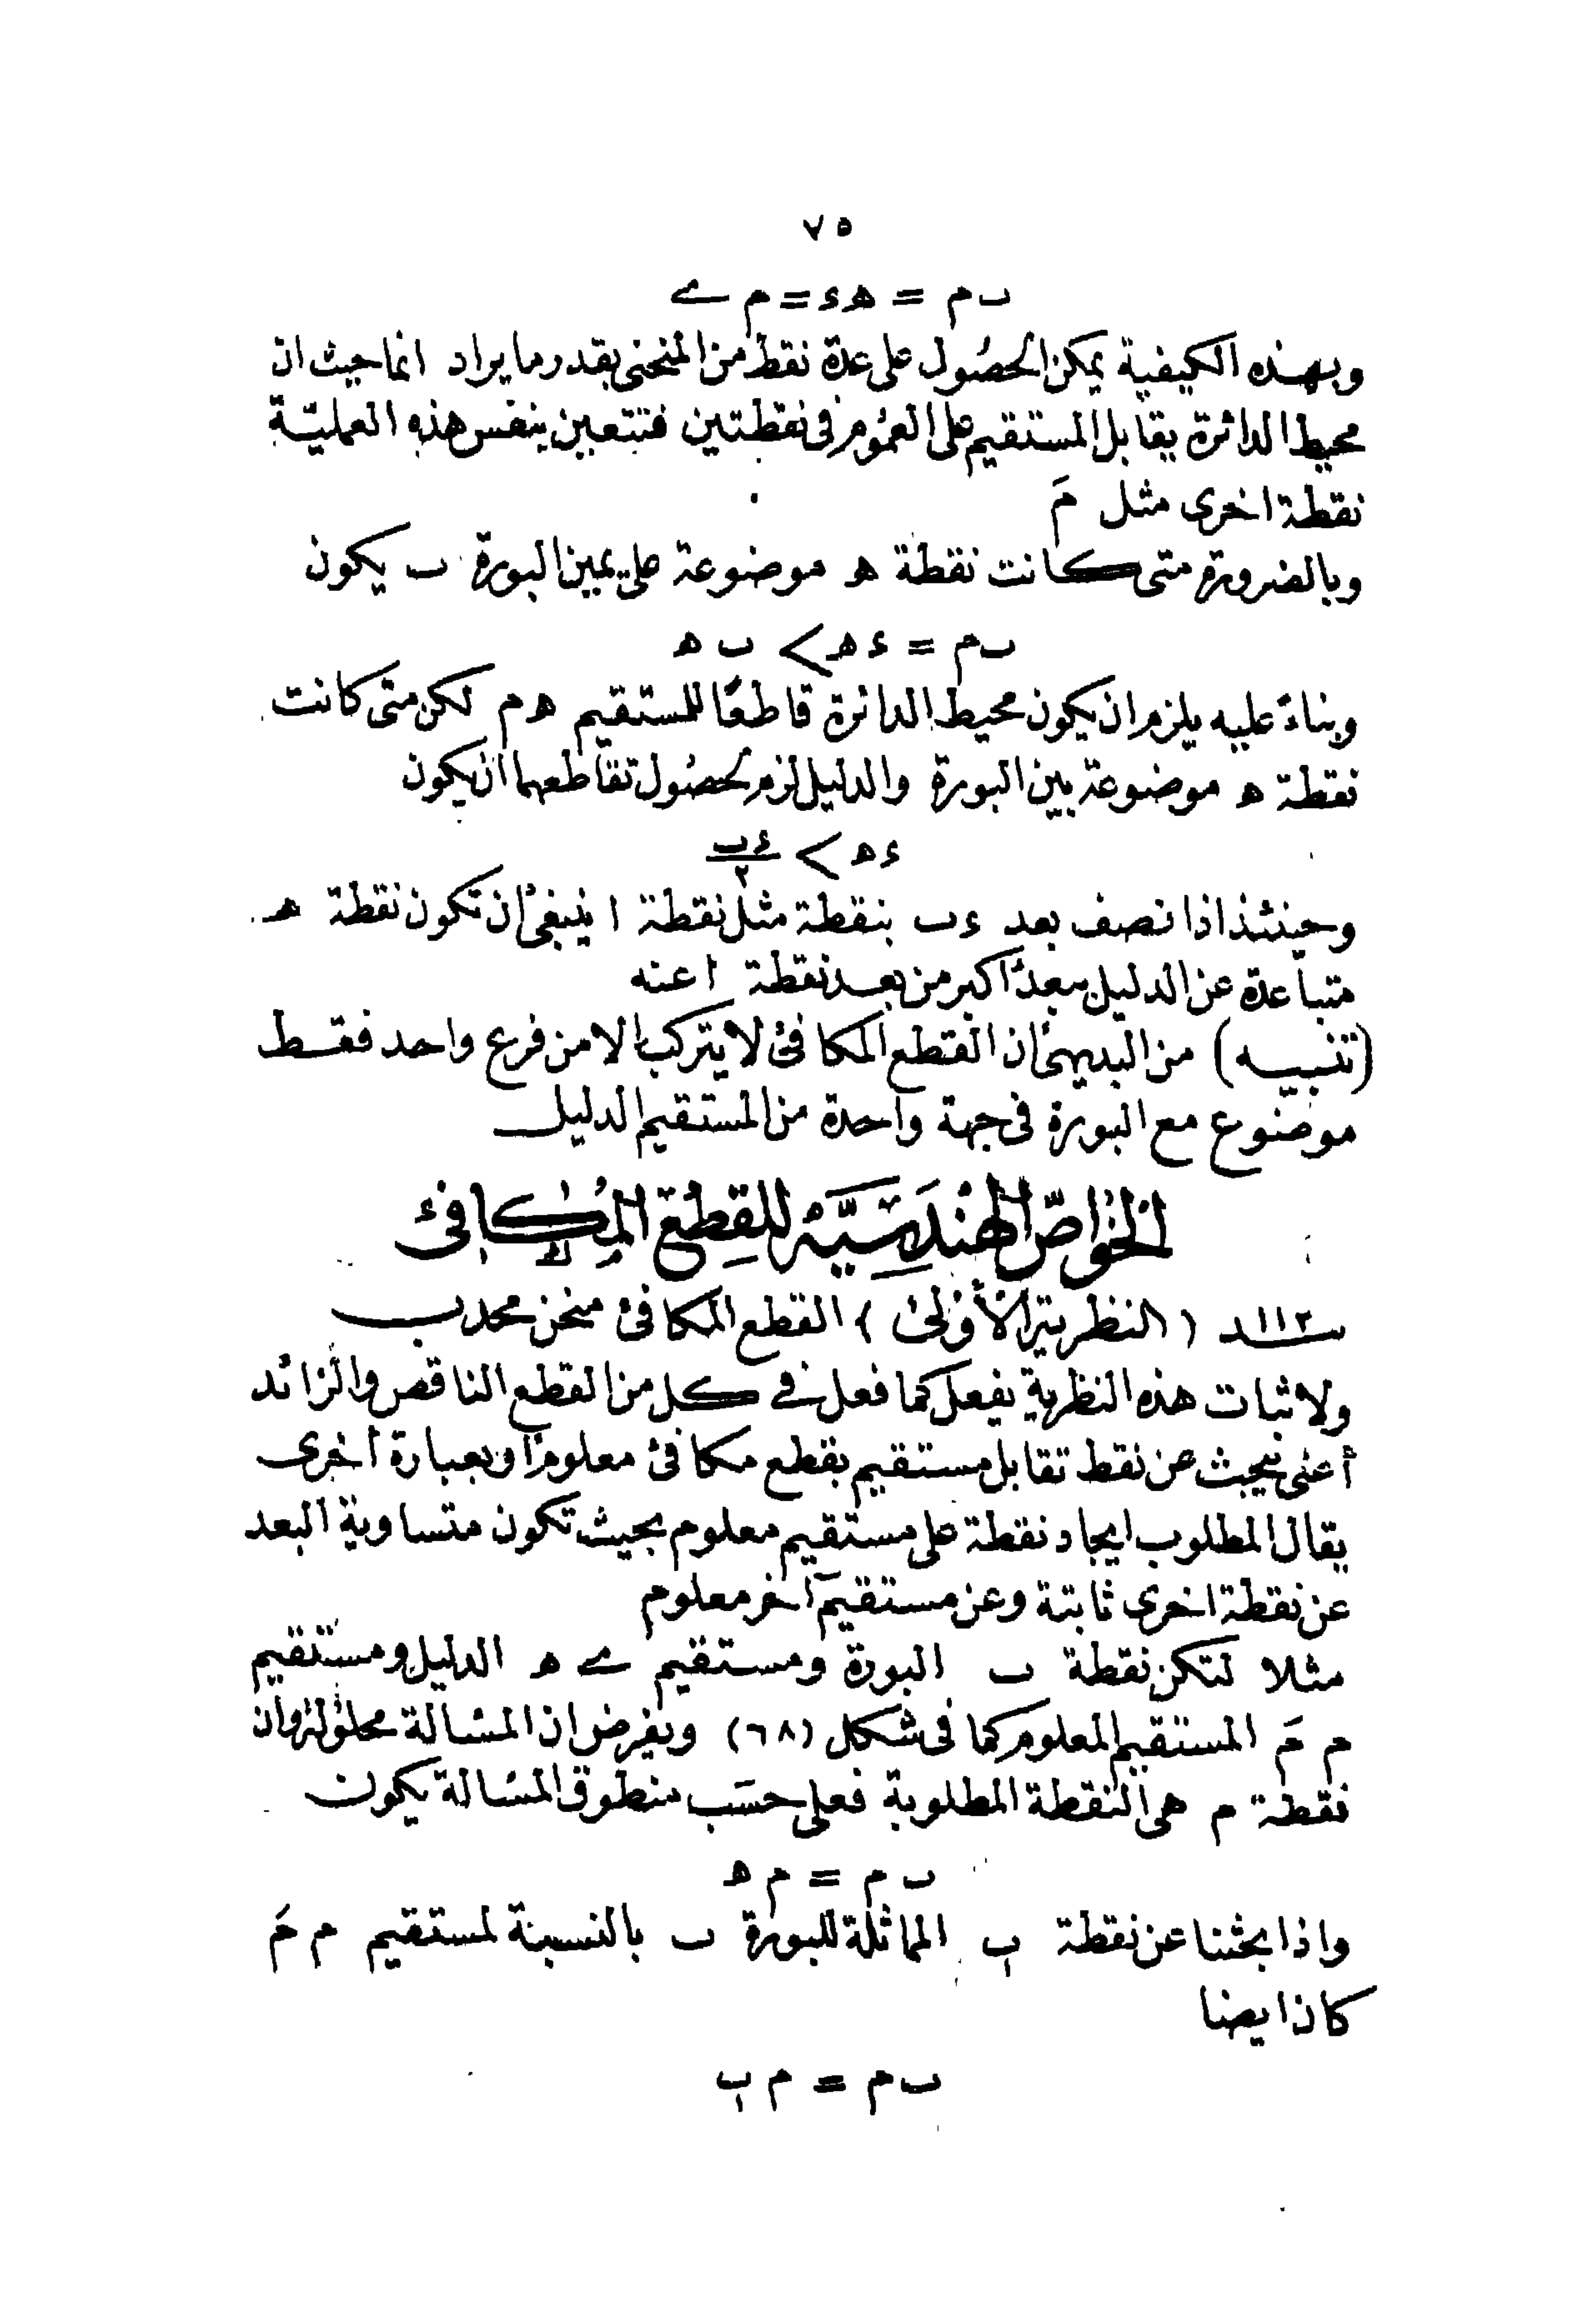 ٧٥
ٮ م = ه ء = م ے
وبهذه الكيفية يمكن الحصول على عدة نقط من المنحنى بقدر ما يراد انما حيث ان
محيط الدائرة يقابل المستقيم على العموم فى نقطتين فتتعين بنفس هذه العمليّة
نقطة اخرى مثل مَ
وبالضرورة متى كانت نقطة ه موضوعة على يمين البورة ٮ يكون
ٮ م = ء ه > ٮ ه
وبناءً عليه يلزم ان يكون محيط الدائرة قاطعًا للمستقيم ه م لكن متى كانت
نقطة ه موضوعة بين البورة والدليل لزم لحصول تقاطعهما ان يكون
ء ه > ءٮ/٢
وحينئذ اذا نصف بعد ءٮ بنقطة مثل نقطة ا ينبغى ان تكون نقطة ه
متباعدة عن الدليل ببعد اكبر من بعد نقطة ا عنه
(تنبيه) من البديهى ان القطع المكافئ لا يتركب الا من فرع واحد فقط
موضوع مع البورة فى جهة واحدة من المستقيم الدليل
الخواصّ الهندسيّة للقطع المكافئ
١١٢ـد (النظرية الأولى) القطع المكافئ منحن محدب
ولاثبات هذه النظرية يفعل كما فعل فے كل من القطع الناقص والزائد
أعنى يبحث عن نقط تقابل مستقيم بقطع مكافئ معلوم او بعبارة أخرى
يقال المطلوب ايجاد نقطة على مستقيم معلوم بحيث تكون متساوية البعد
عن نقطة اخرى ثابتة وعن مستقيم آخر معلوم
مثلا لتكن نقطة ٮ البورة ومستقيم ے ه الدليل ومستقيم
م مَ المستقيم المعلوم كما فى شكل (٦٨) ويفرض ان المسالة محلولة وان
نقطة م هى النقطة المطلوبة فعلى حسب منطوق المسالة يكون
ٮ م = م ه
واذا بحثنا عن نقطة ٮ١ المماثلة للبورة ٮ بالنسبة لمستقيم م مَ
كان ايضا
ٮ م = م ٮ١